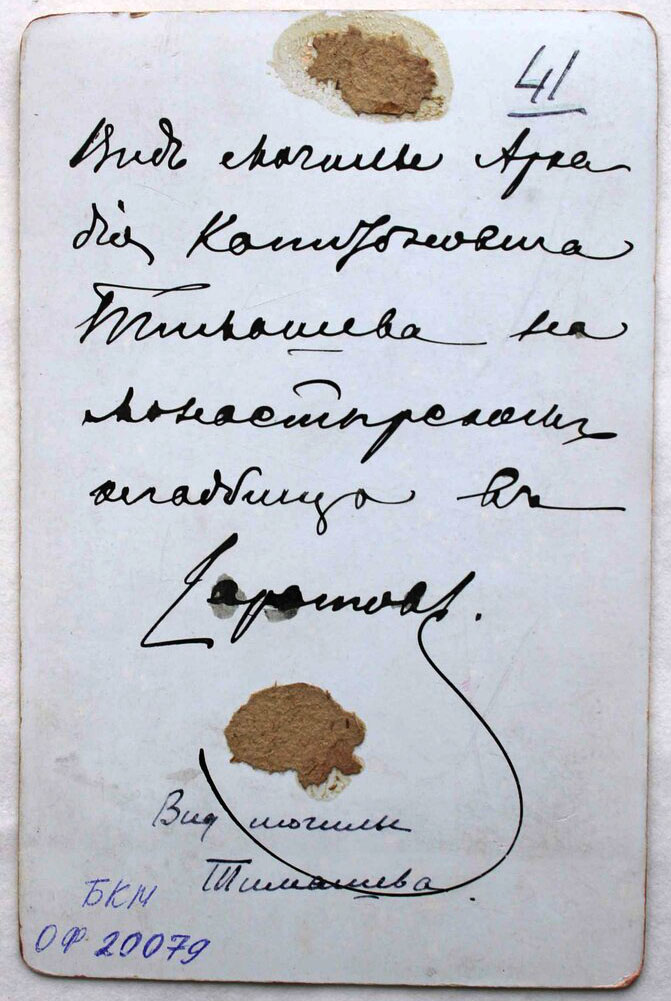 41
Видъ могилы Арка
дія Капитоновича
Тимашева на
монастырскомъ
кладбищѣ въ
Саратовѣ.
Вид могилы
Тимашева
БКМ
ОФ 20079